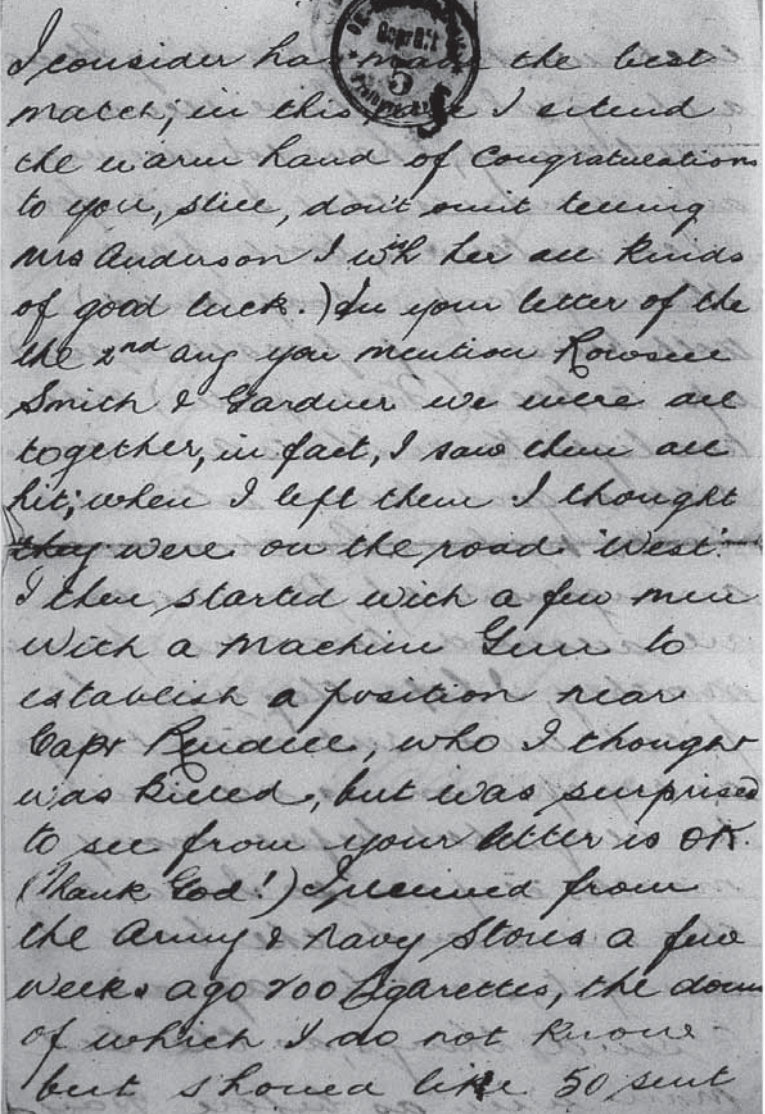 Geprüft
5
I consider has made the best
match; in this I extend
the warm hand of Congratulations
to you, still, don't omit telling
Mrs Anderson I wish her all kinds
of good luck.) In your letter of the
the 2nd aug you mention Rowsell
Smith & Gardner we were all
together, in fact, I saw them all
hit; when I left them I thought
they were on the road 'West'.
I then started with a few men
with a Machine Gun to
establish a position near
Capt Rendell, who I thought
was killed, but was surprised
to see from your letter is OK.
(Thank God!) I received from
the Army & Navy Stores a few
weeks ago 200 Cigarettes, the
of which I do not know
but should like 50 sent